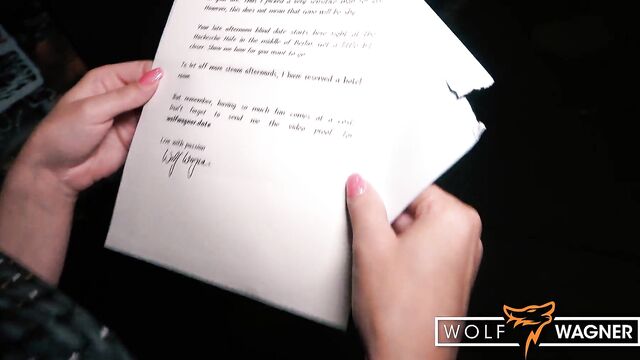 However, this does not mean that tone will be shy.
Your late afternoon blind date starts here right at the
Hackesche Höfe in the middle of Berlin. Get a little bit
closer. Show me how far you want to go.
To let off more steam afterwards, I have reserved a hotel
room.
But remember, having so much fun comes at a cost.
Don't forget to send me the video proof for
wolfwagner.date
Live with passion
Wolf Wagner
WOLF WAGNER